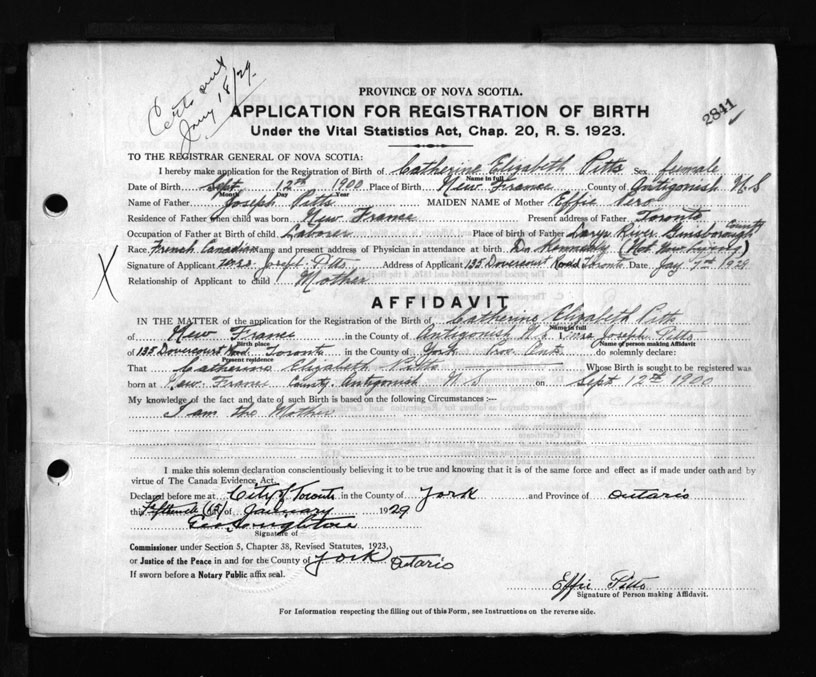 Certs sent
Jany 18/29.
PROVINCE OF NOVA SCOTIA.
APPLICATION FOR REGISTRATION OF BIRTH
2841
Under the Vital Statistics Act, Chap. 20, R. S. 1923.
TO THE REGISTRAR GENERAL OF NOVA SCOTIA:
I hereby make application for the Registration of Birth of Catherine Elizabeth Pitts Sex female
Name in full
Date of Birth Sept 12th 1900 Place of Birth New France County of Antigonish N.S
Month Day Year
Name of Father Joseph Pitts MAIDEN NAME of Mother Effie
Residence of Father when child was born New France Present address of Father Toronto
Occupation of Father at Birth of child Laborer Place of birth of Father Larys River Guysborough County
Race, French Canadian Name and present address of Physician in attendance at birth Dr. Kennedy (Not now living)
Signature of Applicant Mrs. Joseph Pitts Address of Applicant 135 Dovercourt Road Toronto Date Jay 7th 1929
Relationship of Applicant to child Mother
AFFIDAVIT
IN THE MATTER of the application for the Registration of the Birth of Catherine Elizabeth Pitts
Name in full
of New France in the County of Antigonish N.S I, Mrs Joseph Pitts
Birth place Name of person making Affidavit
of 135 Dovercourt Road Toronto in the County of York Prov Ont do solemnly declare:
Present residence
That Catherine Elizabeth Pitts Whose Birth is sought to be registered was
born at New France County Antigonish N S on Sept 12th 1900
My knowledge of the fact and date of such Birth is based on the following Circumstances :—
I am the Mother
I make this solemn declaration conscientiously believing it to be true and knowing that it is of the same force and effect as if made under oath and by
virtue of The Canada Evidence Act.
Declared before me at City of Toronto in the County of York and Province of Ontario
this day of January 1929
Signature of
Commissioner under Section 5, Chapter 38, Revised Statutes, 1923,
or Justice of the Peace in and for the County of York Ontario
If sworn before a Notary Public affix seal.
Effie Pitts
Signature of Person making Affidavit.
For Information respecting the filling out of this Form, see Instructions on the reverse side.